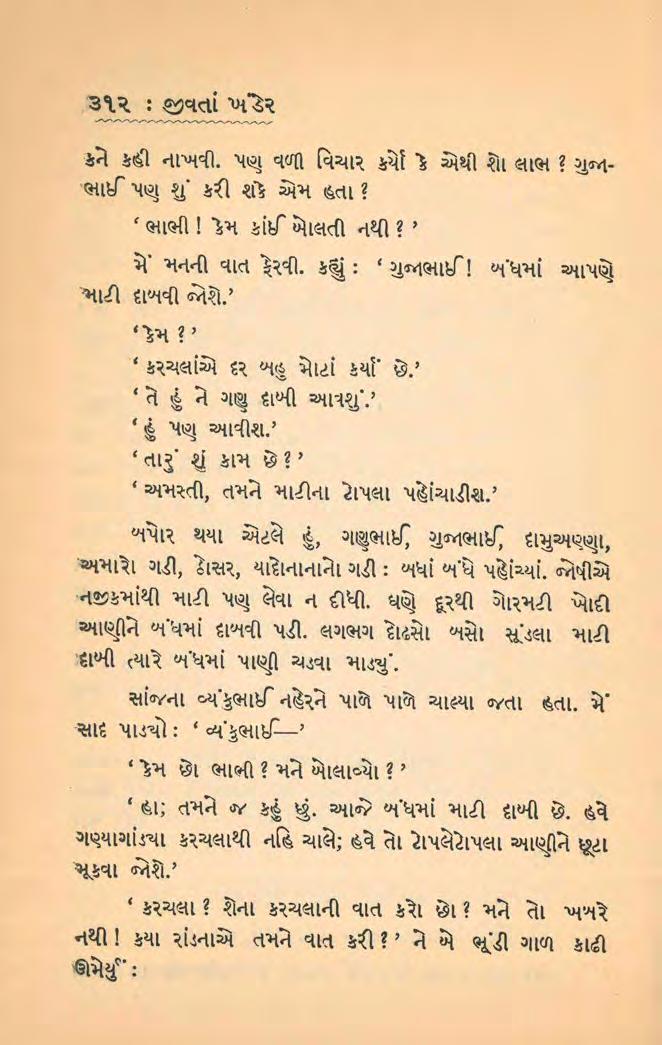 ૩૧૨ : જીવતાં ખંડેર
કને કહી નાખવી. પણ વળી વિચાર કર્યો કે એથી શો લાભ ? ગુજા-
ભાઈ પણ શું કરી શકે એમ હતા ?
‘ ભાભી ! કેમ કાંઈ બોલતી નથી ? ’
મેં મનની વાત ફેરવી. કહ્યું : ‘ ગુજાભાઈ ! બંધમાં આપણે
માટી દાબવી જોશે.’
‘કેમ ? ’
‘ કરચલાંએ દર બહુ મોટાં કર્યાં છે.’
‘ તે હું ને ગણુ દાબી આવશું.’
‘ હું પણ આવીશ.’
‘ તારું શું કામ છે ? ’
‘ અમસ્તી, તમને માટીના ટોપલા પહોંચાડીશ.’
બપોર થયા એટલે હું, ગણુભાઈ, ગુજાભાઈ, દામુઅણ્ણા,
અમારો ગડી, ઠોસર, યાદોનાનાનો ગડી : બધાં બંધે પહોંચ્યાં. જોષીએ
નજીકમાંથી માટી પણ લેવા ન દીધી. ઘણે દૂરથી ગોરમટી ખોદી
આણીને બંધમાં દાબવી પડી. લગભગ દોઢસો બસો સૂંડલા માટી
દાબી ત્યારે બંધમાં પાણી ચડવા માંડ્યું.
સાંજના વ્યંકુભાઈ નહેરને પાળે પાળે ચાલ્યા જતા હતા. મેં
સાદ પાડ્યો : ‘ વ્યંકુભાઈ—’
‘ કેમ છો ભાભી ? મને બોલાવ્યો ? ’
‘ હા; તમને જ કહું છું. આજે બંધમાં માટી દાબી છે. હવે
ગણ્યાગાંઠ્યા કરચલાથી નહિ ચાલે; હવે તો ટોપલેટોપલા આણીને છૂટા
મૂકવા જોશે.’
‘ કરચલા ? શેના કરચલાની વાત કરો છો ? મને તો ખબરે
નથી ! કયા રાંડનાએ તમને વાત કરી ? ’ ને બે ભૂંડી ગાળ કાઢી
ઊમેર્યું :